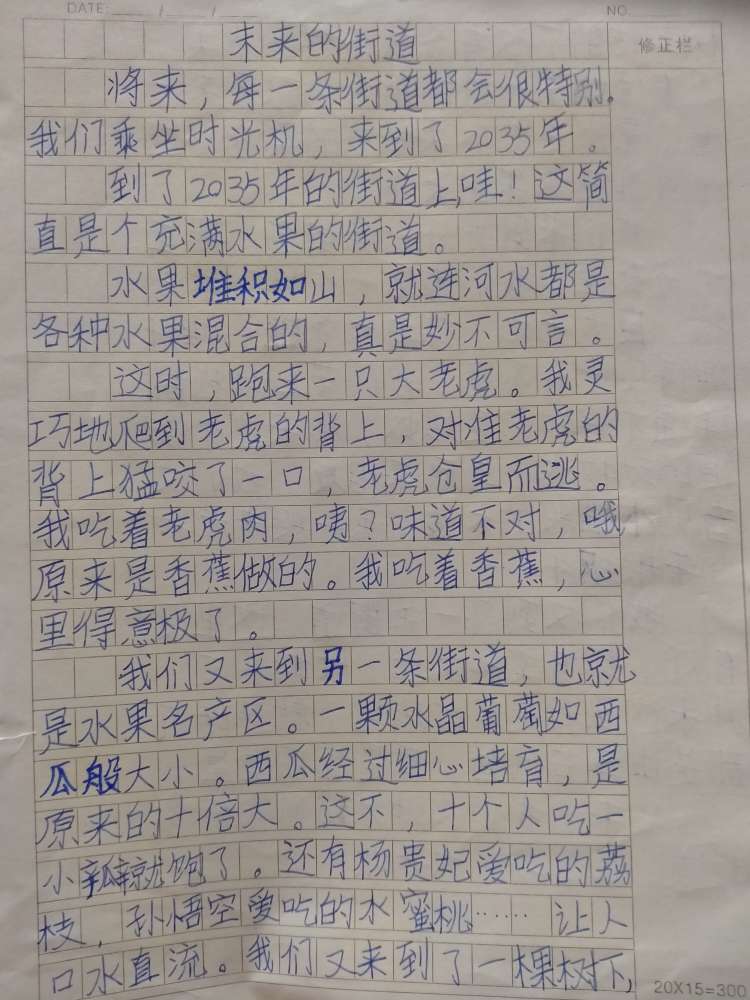 DATE: / /
NO.
修正栏
未来的街道
将来，每一条街道都会很特别.
我们乘坐时光机，来到了2035年。
到了2035年的街道上,哇！这简
直是个充满水果的街道。
水果堆积如山，就连河水都是
各种水果混合的，真是妙不可言。
这时，跑来一只大老虎。我灵
巧地爬到老虎的背上，对准老虎的
背上猛咬了一口，老虎仓皇而逃。
我吃着老虎肉，咦？味道不对，哦
原来是香蕉做的。我吃着香蕉，心
里得意极了。
我们又来到另一条街道，也就
是水果名产区。一颗水晶葡萄如西
瓜般大小。西瓜经过细心培育，是
原来的十倍大。这不，十个人吃一
小瓣就饱了。还有杨贵妃爱吃的荔
枝，孙悟空爱吃的水蜜桃……让人
口水直流。我们又来到了一棵树下,
20X15=300